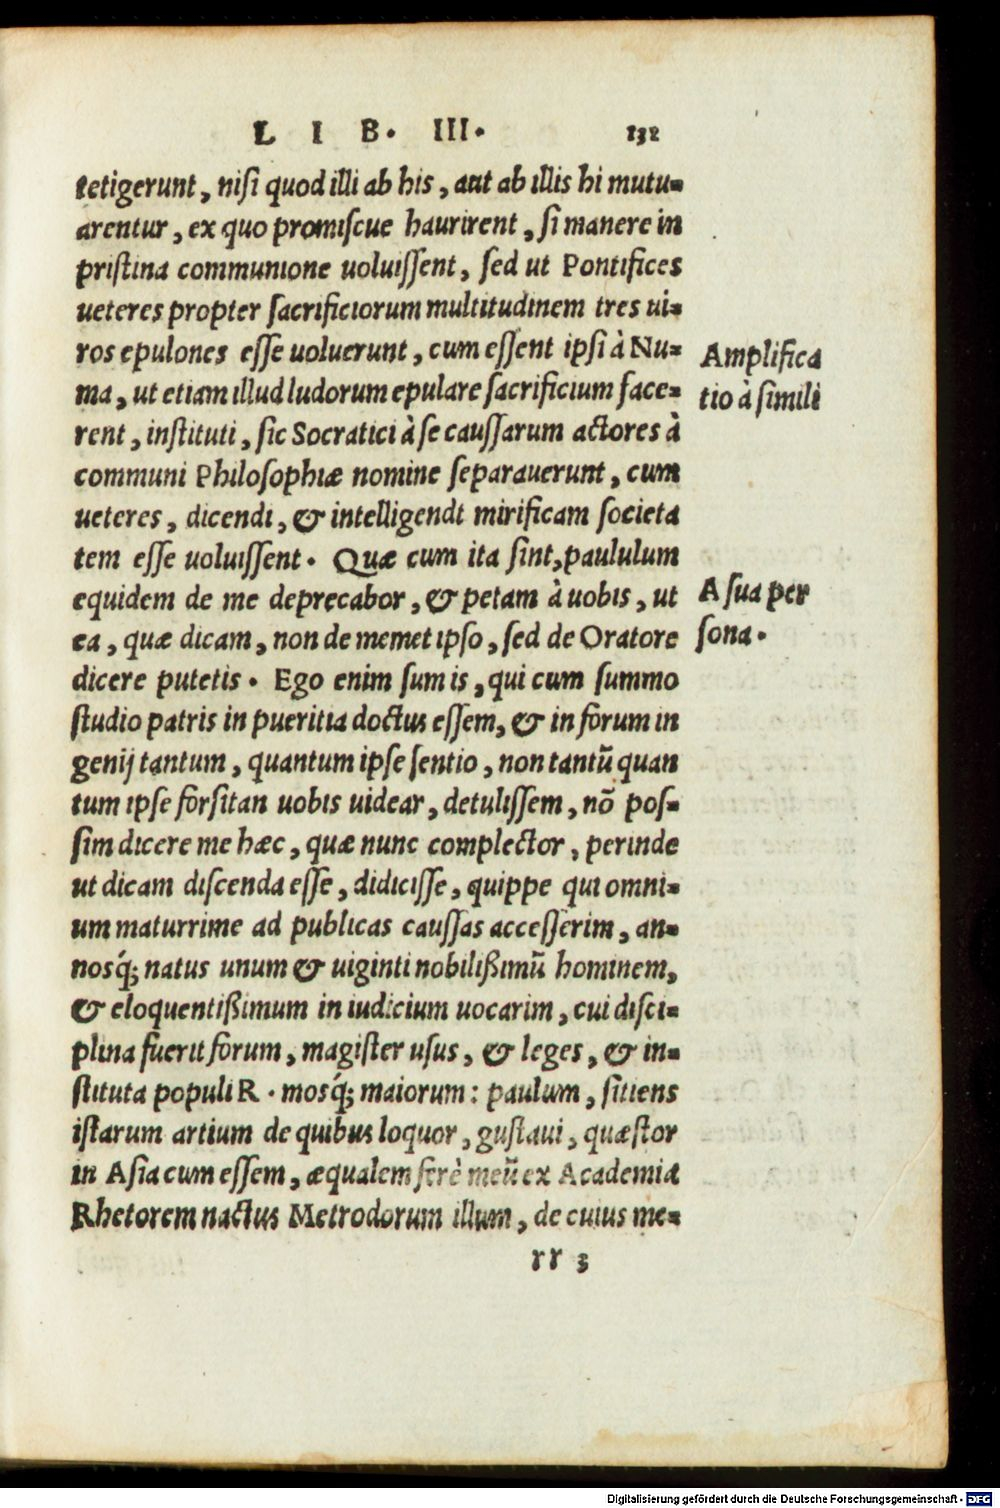 L I B. III. 132
tetigerunt, nisi quod illi ab his, aut ab illis hi mutu-
arentur, ex quo promiscue haurirent, si manere in
pristina communione uoluissent, sed ut Pontifices
ueteres propter sacrificiorum multitudinem tres ui-
ros epulones esse uoluerunt, cum essent ipsi à Nu-
ma, ut etiam illud ludorum epulare sacrificium face-
rent, instituti, sic Socratici à se caussarum actores à
communi Philosophiæ nomine separauerunt, cum
ueteres, dicendi, & intelligendi mirificam societa
tem esse uoluissent. Quæ cum ita sint, paululum
equidem de me deprecabor, & petam à uobis, ut
ea, quæ dicam, non de memet ipso, sed de Oratore
dicere putetis. Ego enim sum is, qui cum summo
studio patris in pueritia doctus essem, & in forum in
genij tantum, quantum ipse sentio, non tantũ quan
tum ipse forsitan uobis uidear, detulissem, nõ pos-
sim dicere me hæc, quæ nunc complector, perinde
ut dicam discenda esse, didicisse, quippe qui omni-
um maturrime ad publicas caussas accesserim, an-
nosq́; natus unum & uiginti nobilißimũ hominem,
& eloquentißimum in iudicium uocarim, cui disci-
plina fuerit forum, magister usus, & leges, & in-
stituta populi R. mosq́; maiorum: paulum, sitiens
istarum artium de quibus loquor, gustaui, quæstor
in Asia cum essem, æqualem ferè meũ ex Academia
Rhetorem nactus Metrodorum illum, de cuius me-
rr 3
Amplifica
tio à simili
A sua per
sona.
Digitalisierung gefördert durch die Deutsche Forschungsgemeinschaft - DFG